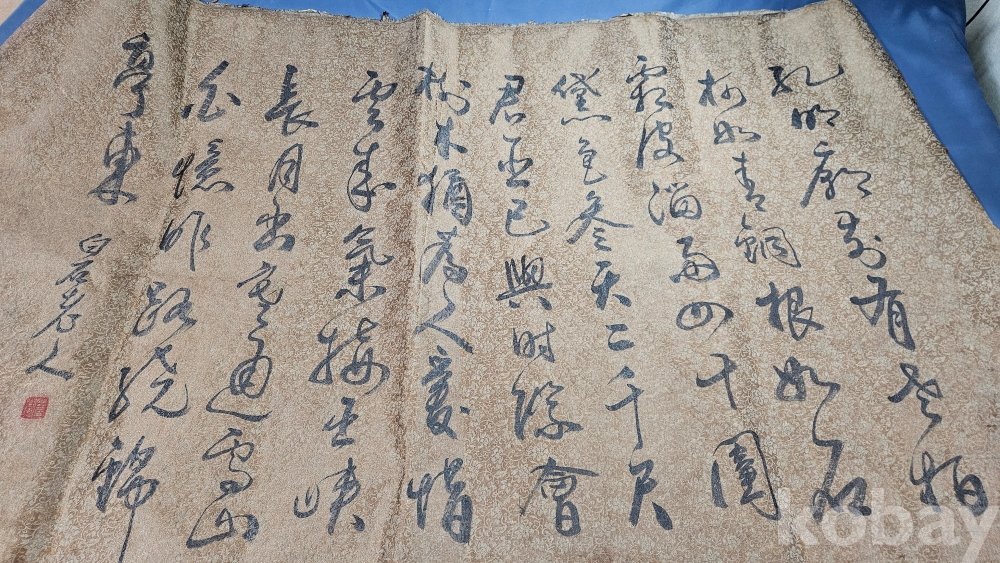 孔明廟前有老柏
柯如青銅根如石
霜皮溜雨四十圍
黛色參天二千尺
君臣已與時際會
樹木猶為人愛惜
雲來氣接巫峽
長月出寒通雪山
白憶昨路繞錦
亭東
白石老人
kobay